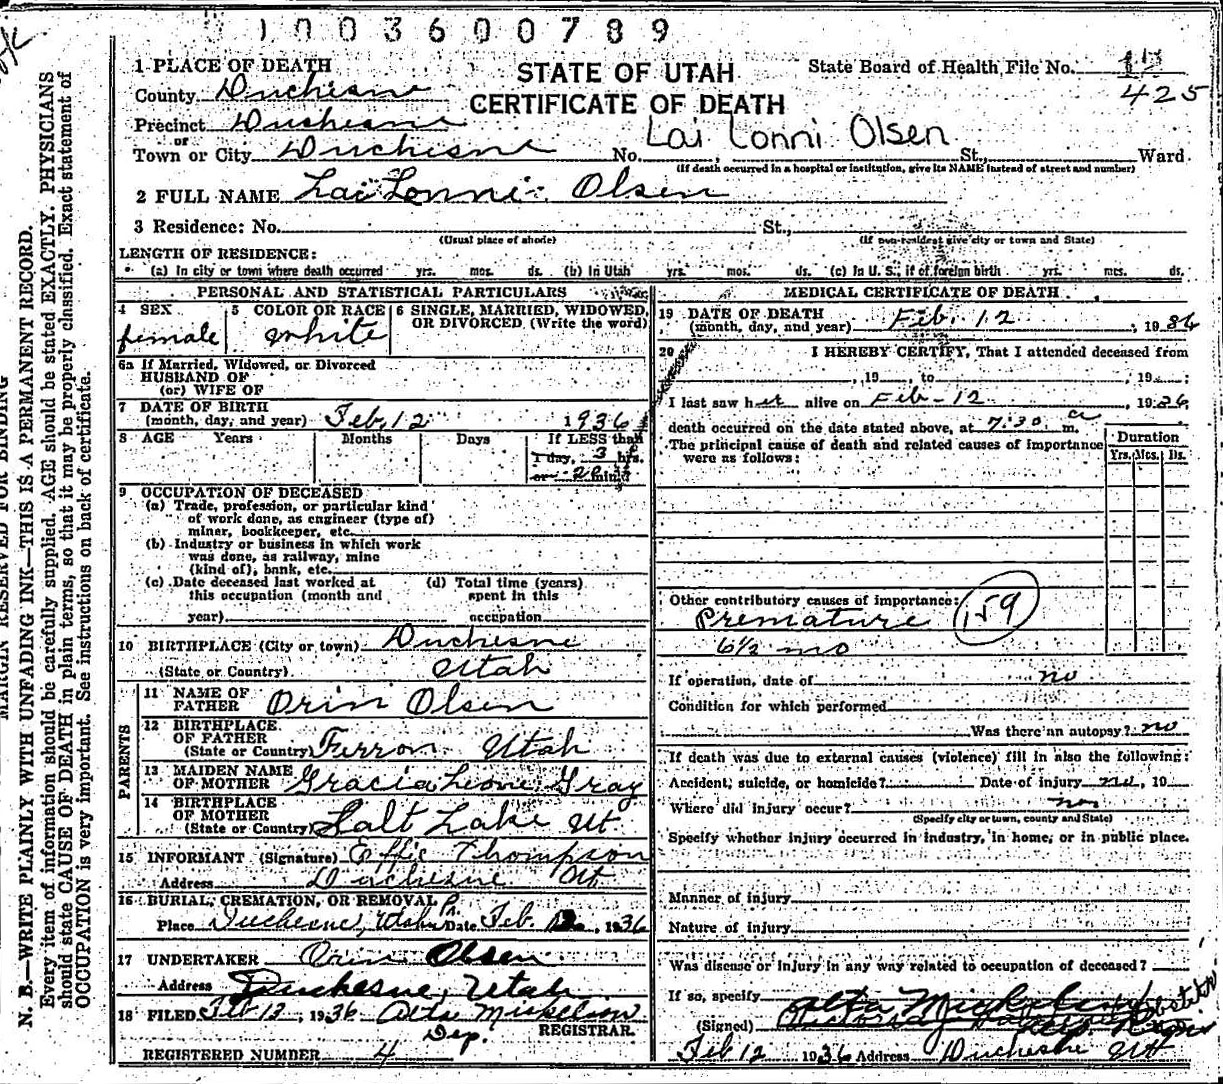 1003600789
1 PLACE OF DEATH
STATE OF UTAH
CERTIFICATE OF DEATH
State Board of Health File No.
425
County Duchesne
Precinct Duchesne
or
Lai Lonni Olsen
Town or City Duchesne No. , St., Ward
(If death occurred in a hospital or institution, give its NAME instead of street and number)
2 FULL NAME Lai Lonni Olsen
3 Residence: No. St.,
(Usual place of abode) (If non-resident give city or town and State)
LENGTH OF RESIDENCE:
(a) In city or town where death occurred yrs. mos. ds. (b) In Utah yrs. mos. ds. (c) In U. S., if of foreign birth yrs. mos. ds.
PERSONAL AND STATISTICAL PARTICULARS
4 SEX female
5 COLOR OR RACE white
6 SINGLE, MARRIED, WIDOWED, OR DIVORCED (Write the word)
6a If Married, Widowed, or Divorced
HUSBAND OF
(or) WIFE OF
7 DATE OF BIRTH
(month, day, and year) Feb. 12 1936
8 AGE Years Months Days If LESS than
1 day, 3 hrs.
or min.
9 OCCUPATION OF DECEASED
(a) Trade, profession, or particular kind
of work done, as engineer (type of)
miner, bookkeeper, etc.
(b) Industry or business in which work
was done, as railway, mine
(kind of), bank, etc.
(c) Date deceased last worked at
this occupation (month and
year)
(d) Total time (years)
spent in this
occupation
10 BIRTHPLACE (City or town) Duchesne
(State or Country) Utah
PARENTS
11 NAME OF
FATHER Orin Olsen
12 BIRTHPLACE
OF FATHER
(State or Country) Ferron Utah
13 MAIDEN NAME
OF MOTHER Gracia Leone Gray
14 BIRTHPLACE
OF MOTHER
(State or Country) Salt Lake Ut
15 INFORMANT (Signature) Effie Thompson
Address Duchesne Ut
16 BURIAL, CREMATION, OR REMOVAL
Place Duchesne, Utah Date Feb. , 1936
17 UNDERTAKER Orin Olsen
Address Duchesne, Utah
18 FILED Feb 12, 1936 Alta Mickelson
Dep. REGISTRAR.
REGISTERED NUMBER 4
MEDICAL CERTIFICATE OF DEATH
19 DATE OF DEATH
(month, day, and year) Feb. 12, 1936
20 I HEREBY CERTIFY, That I attended deceased from
, 19 , to , 19 ;
I last saw her alive on Feb-12, 1936
death occurred on the date stated above, at 7:30 a m.
The principal cause of death and related causes of importance
were as follows:
Duration
Yrs. Mos. Ds.
Other contributory causes of importance: 159
Premature
6½ mo
If operation, date of no
Condition for which performed
Was there an autopsy? no
If death was due to external causes (violence) fill in also the following:
Accident, suicide, or homicide? Date of injury no, 19
Where did injury occur? no
(Specify city or town, county and State)
Specify whether injury occurred in industry, in home, or in public place.
Manner of injury
Nature of injury
Was disease or injury in any way related to occupation of deceased?
If so, specify
(Signed) Alta
Feb 12 1936 Address Duchesne Ut
MARGIN RESERVED FOR BINDING
N. B.—WRITE PLAINLY WITH UNFADING INK—THIS IS A PERMANENT RECORD.
Every item of information should be carefully supplied. AGE should be stated EXACTLY. PHYSICIANS
should state CAUSE OF DEATH in plain terms, so that it may be properly classified. Exact statement of
OCCUPATION is very important. See instructions on back of certificate.